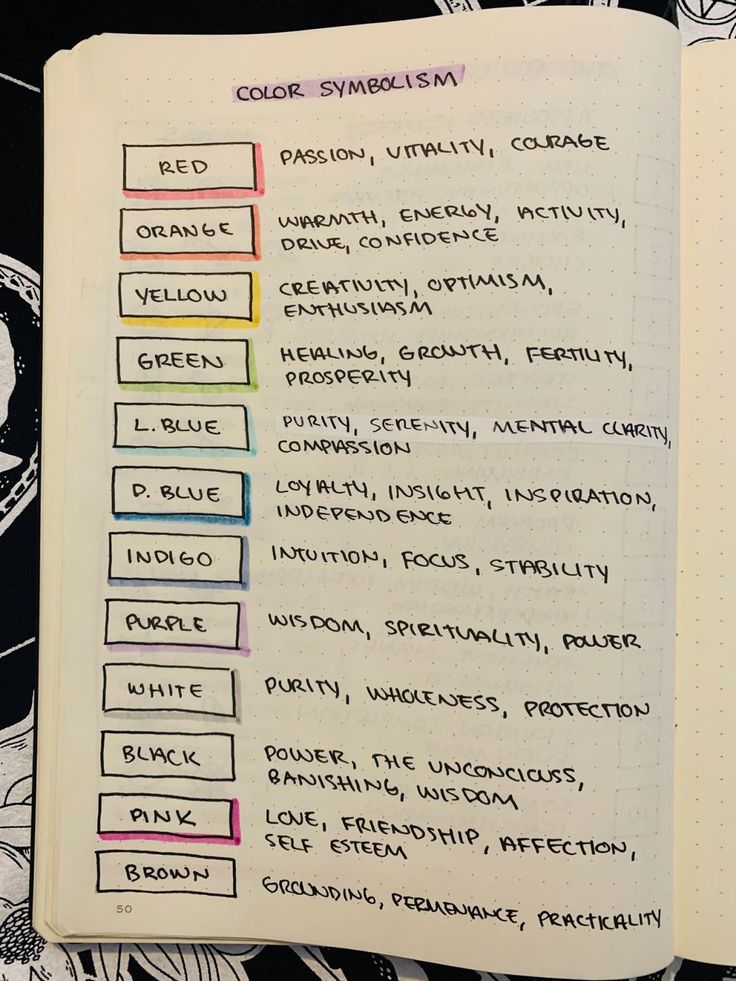 COLOR SYMBOLISM
RED PASSION, VITALITY, COURAGE
ORANGE WARMTH, ENERGY, ACTIVITY,
DRIVE, CONFIDENCE
YELLOW CREATIVITY, OPTIMISM,
ENTHUSIASM
GREEN HEALING, GROWTH, FERTILITY,
PROSPERITY
L. BLUE PURITY, SERENITY, MENTAL CLARITY,
COMPASSION
D. BLUE LOYALTY, INSIGHT, INSPIRATION,
INDEPENDENCE
INDIGO INTUITION, FOCUS, STABILITY
PURPLE WISDOM, SPIRITUALITY, POWER
WHITE PURITY, WHOLENESS, PROTECTION
BLACK POWER, THE UNCONCICUSS,
BANISHING, WISDOM
PINK LOVE, FRIENDSHIP, AFFECTION,
SELF ESTEEM
BROWN GROUNDING, PERMENIANCE, PRACTICALITY
50